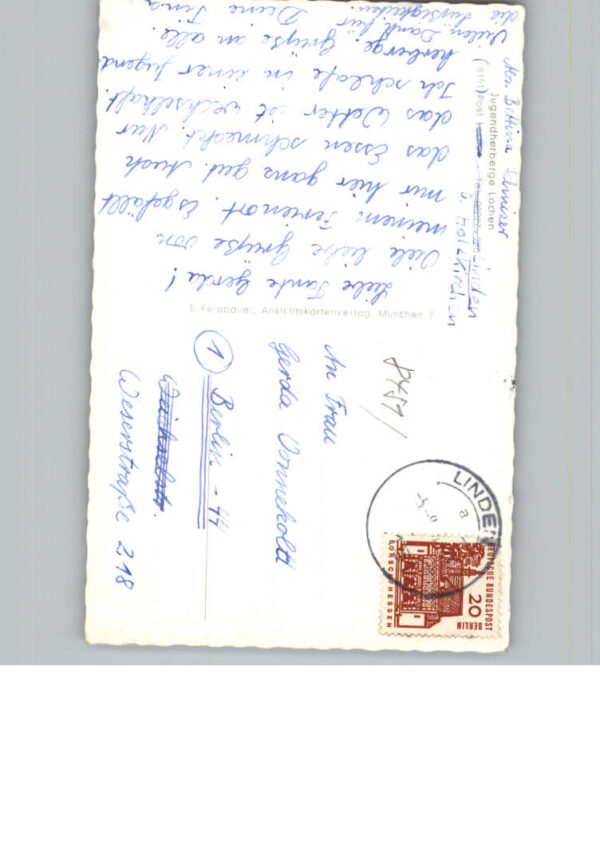 Abs. Bettina
Jugendherberge Lochen
(8151) Post
Linden
ü. Holzkirchen
E. Feldbauer, Ansichtskartenverlag, München 7
Liebe Tante Gerda!
Viele liebe Grüße von
meinem Ferienort. Es gefällt
mir hier ganz gut. Auch
das Essen schmeckt. Nur
das Wetter ist wechselhaft.
Ich schlafe in einer Jugend
herberge. Grüße an alle.
Vielen Dank für Deine
die Süßigkeiten.
8151/
An Frau
Gerda Vonnekold
(1) Berlin - 44
Weichselstr.
Weserstraße 218
LINDEN
a
DEUTSCHE BUNDESPOST
BERLIN
20
LORSCH/HESSEN